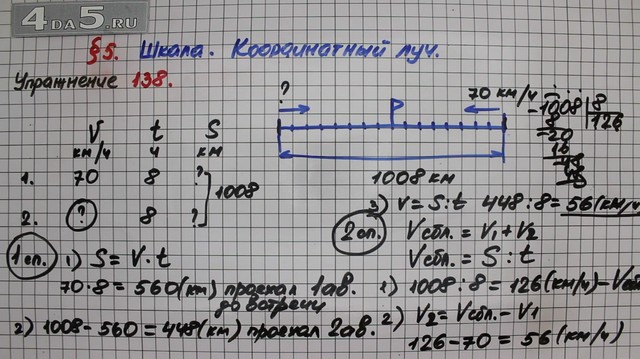 4DA5.RU
§5. Шкала. Координатный луч.
Упражнение 138.
V t S
км/ч ч км
1. 70 8 ?
2. ? 8 ?
1008
? 70 км/ч
1008 км
-1008 8
8 126
20
16
48
48
3) V = S : t 448 : 8 = 56 (км/ч
1 сп. 1) S = V · t
70 · 8 = 560 (км) проехал 1 ав.
до встречи
2) 1008 - 560 = 448 (км) проехал 2 ав.
2 сп. Vсбл. = V1 + V2
Vсбл. = S : t
1) 1008 : 8 = 126 (км/ч) - Vсбл
2) V2 = Vсбл. - V1
126 - 70 = 56 (км/ч)